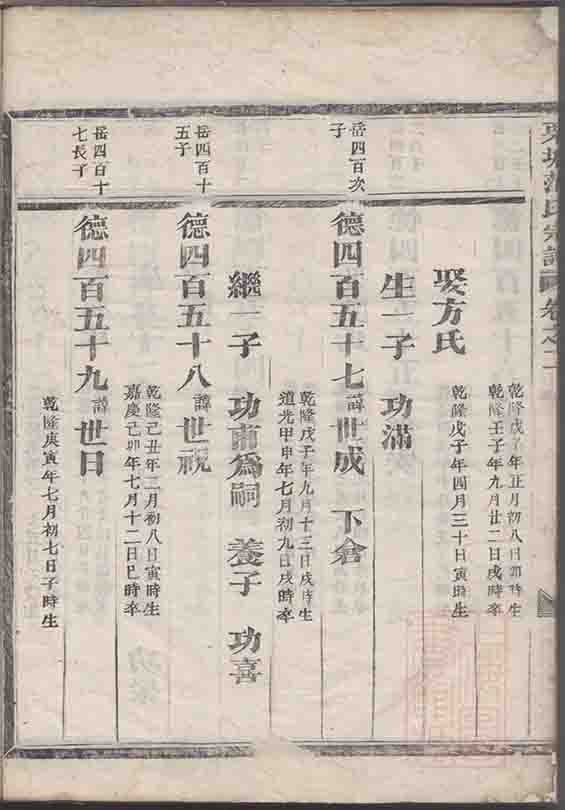 宗譜 卷之二
乾隆戊子年正月初八日卯時生
乾隆壬子年九月廿二日戌時卒
娶方氏
乾隆戊子年四月三十日寅時生
生一子 功滿
岳四百次子
德四百五十七 諱世成 下倉
乾隆戊子年九月十三日戌時生
道光甲申年七月初九日戌時卒
繼一子 功甫為嗣 養子 功喜
岳四百十五子
德四百五十八 諱世祝
乾隆己丑年二月初八日寅時生
嘉慶己卯年七月十二日巳時卒
岳四百十七長子
德四百五十九 諱世日
乾隆庚寅年七月初七日子時生